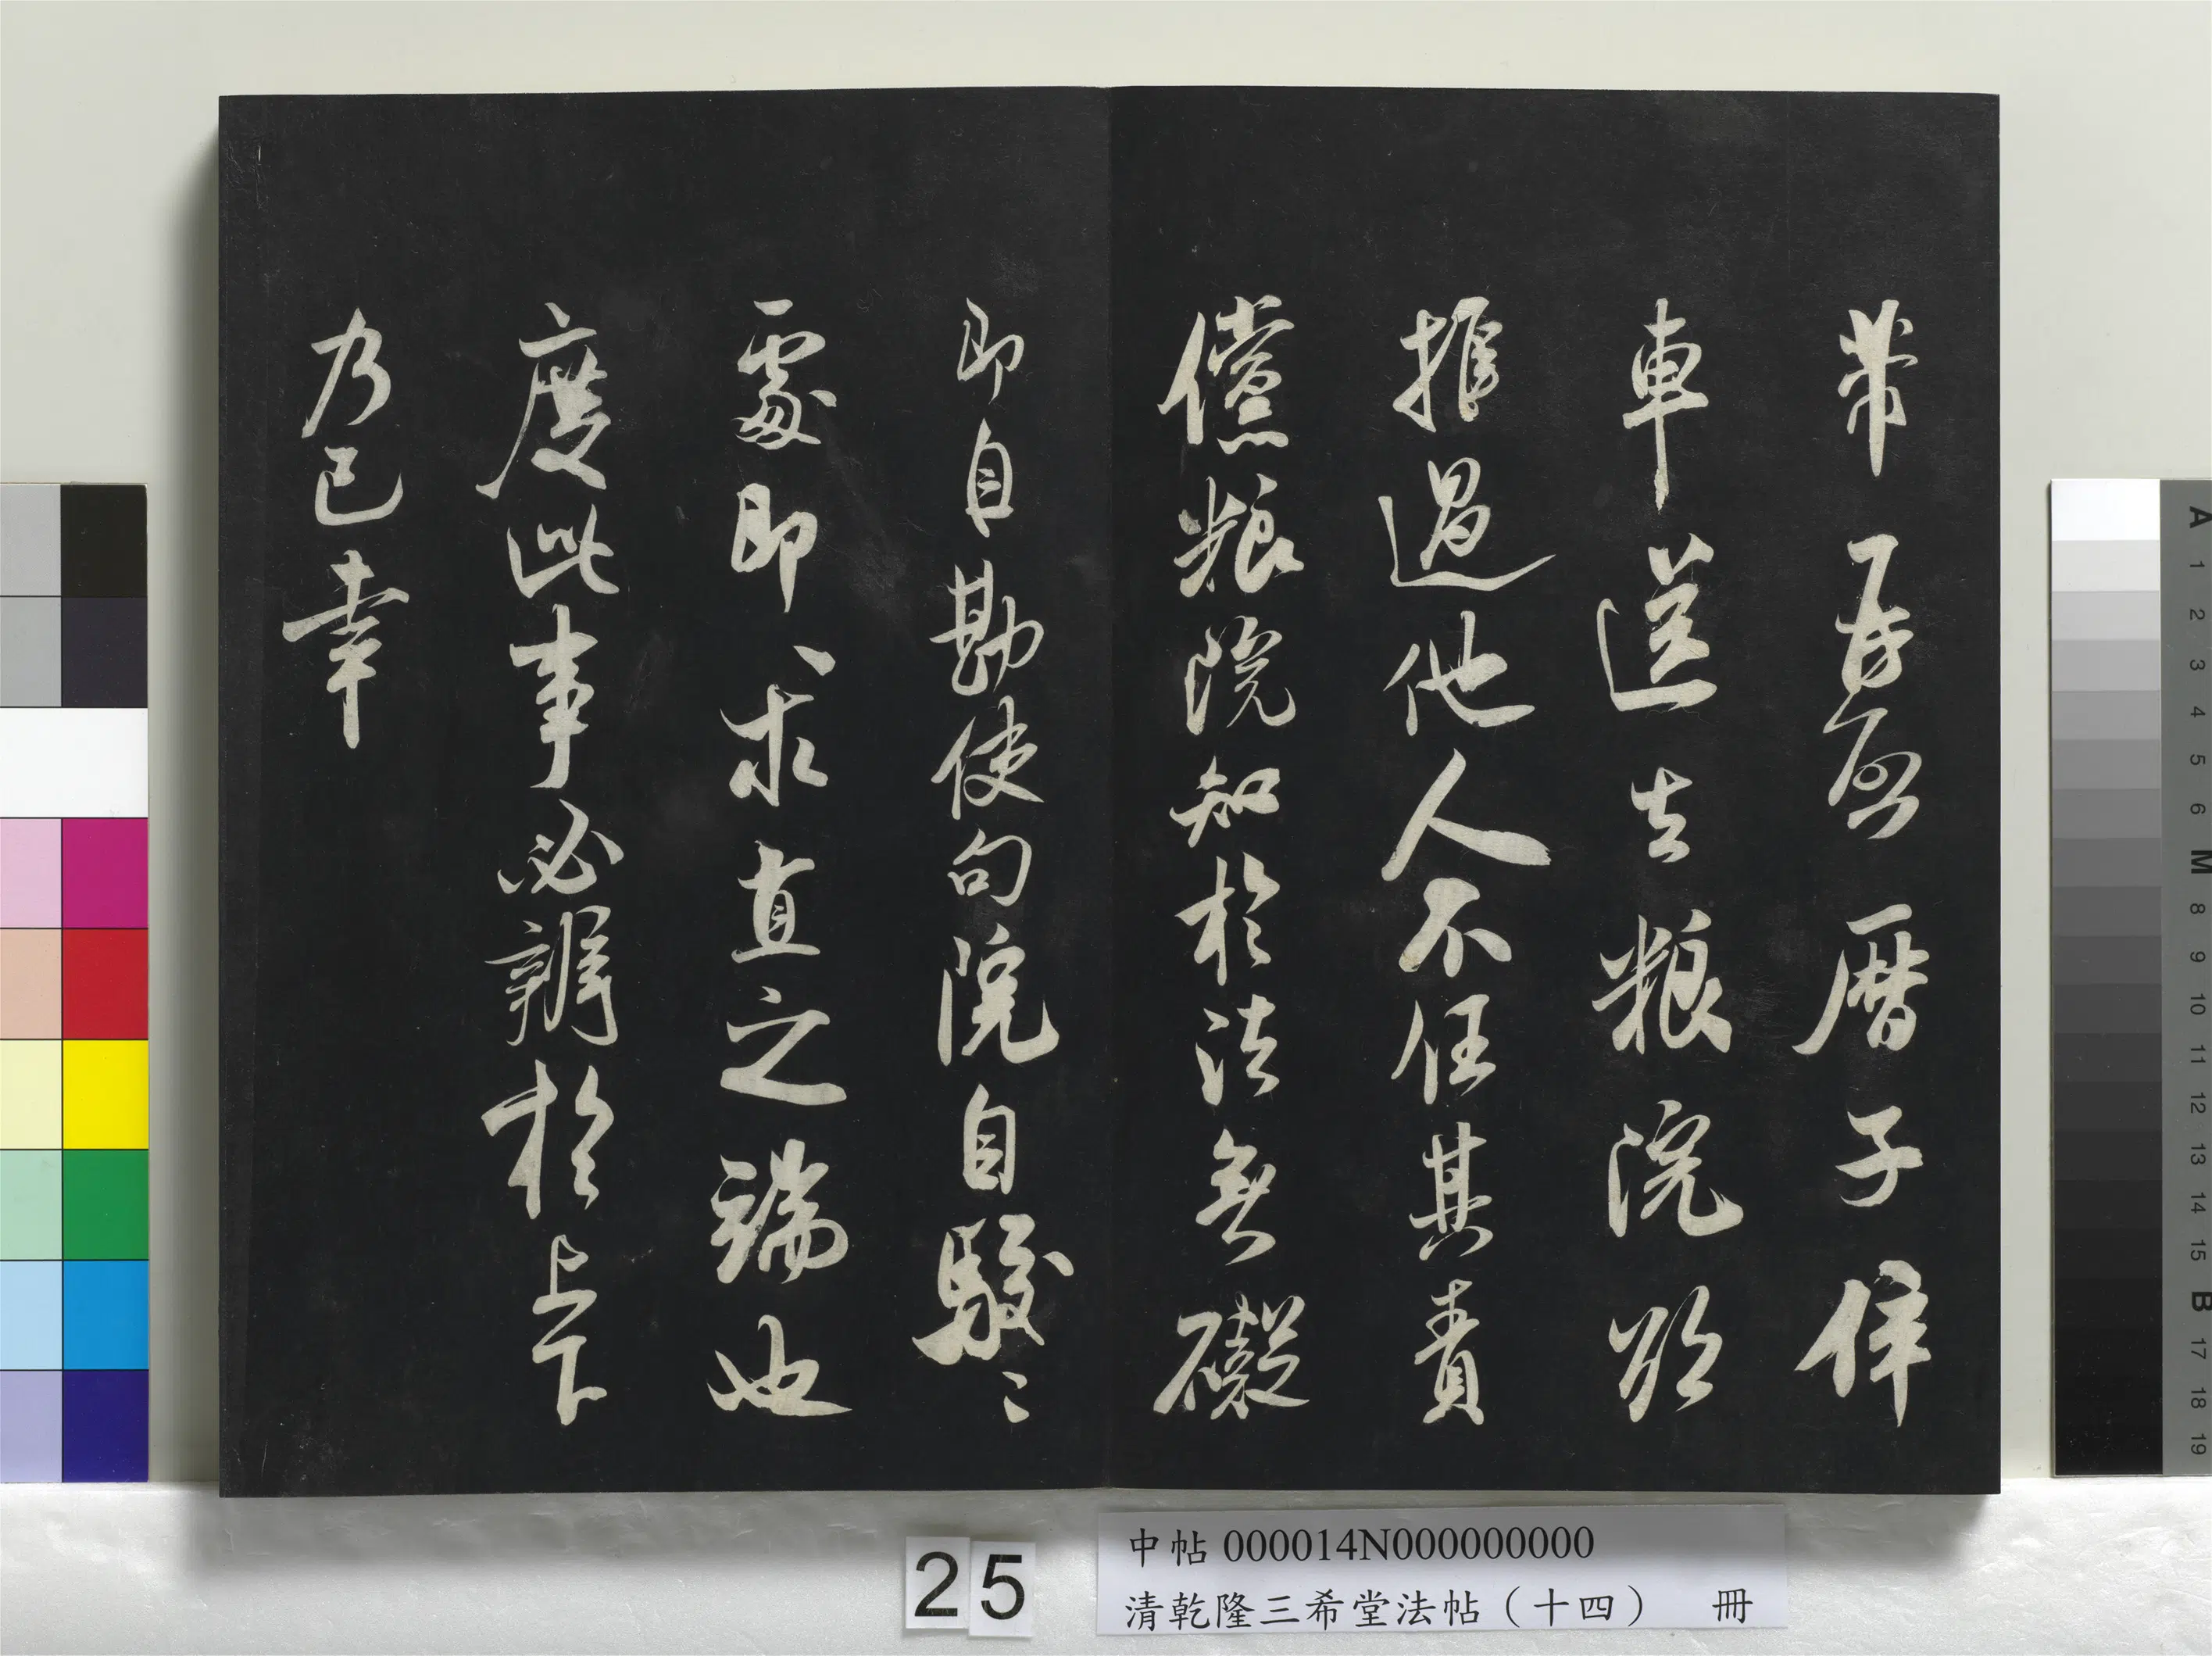 曆子倅
車送去粮院欲
推過他人不任其責
儻粮院知於法無礙
即自勘使句院自駮々
處即求直之端也
度此事必辦於上下
乃已幸
25
中帖 000014N000000000
清乾隆三希堂法帖（十四） 冊
A 1 2 3 4 5 6 M 8 9 10 11 12 13 14 15 B 17 18 19